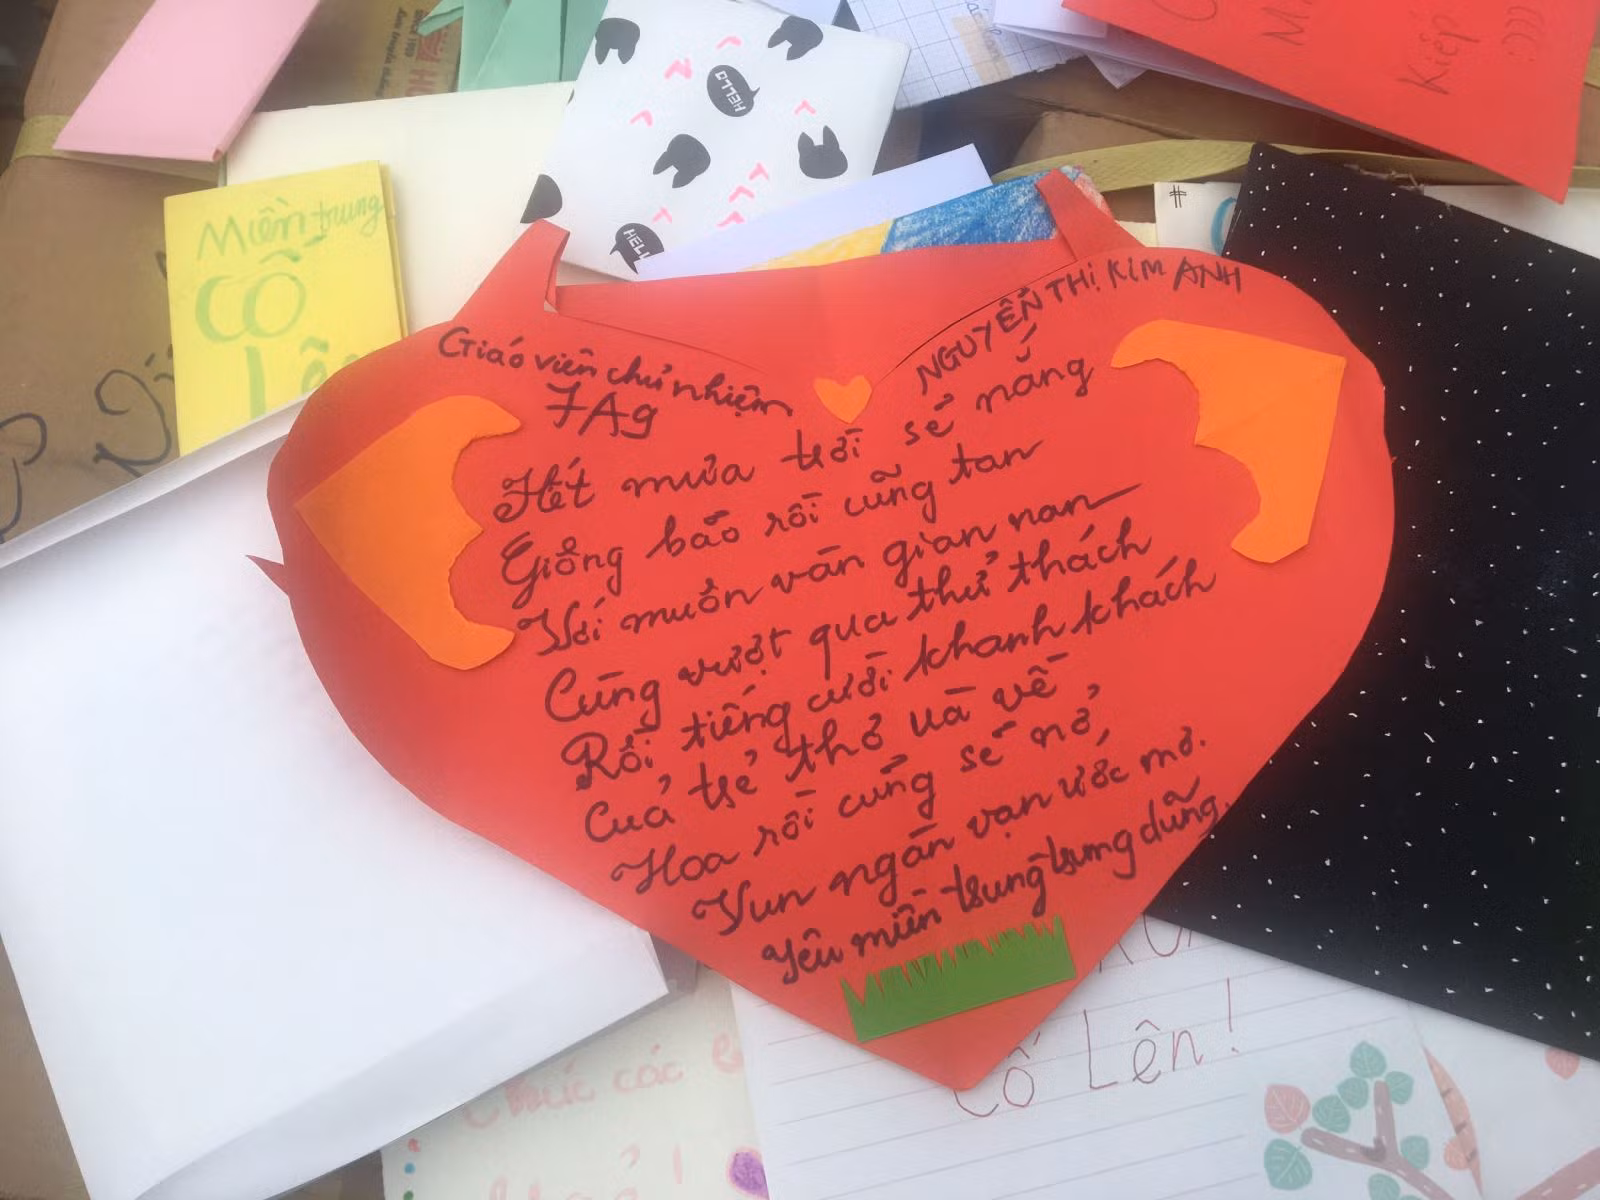 HELLO
HELL
Miền trung
CỐ
Lê
Kiếp
#
Giáo viên chủ nhiệm
7A9
NGUYỄN THỊ KIM ANH
Hết mưa trời sẽ nắng
Giông bão rồi cũng tan
Với muôn vàn gian nan
Cùng vượt qua thử thách
Rồi tiếng cười khanh khách
Của trẻ thơ và về
Hoa rồi cũng sẽ nở,
Vun ngàn vạn ước mơ.
Yêu miền trung trung dũng.
Cố Lên!
Chúc các